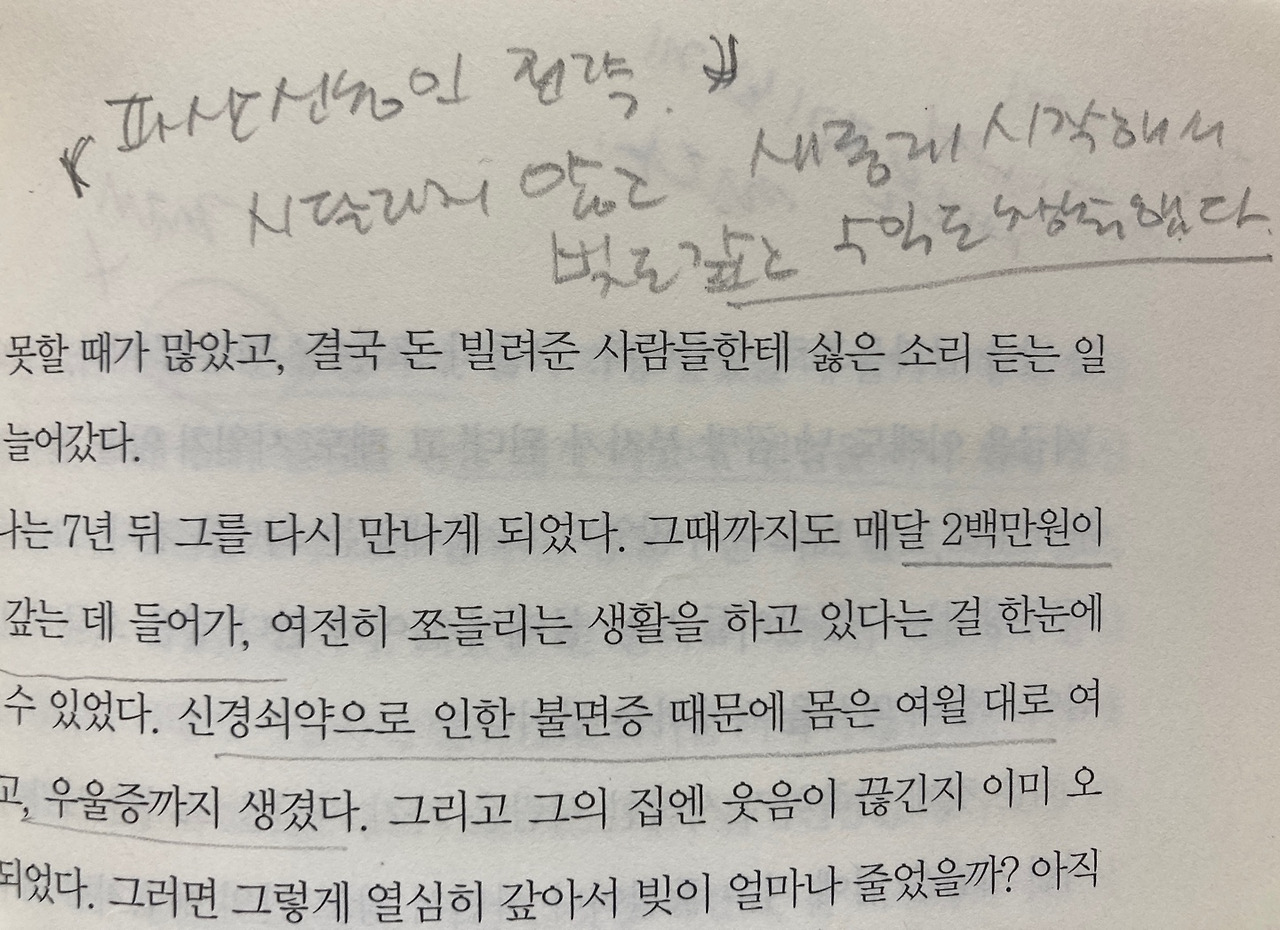 파산신청인 전략.
시달리지 않고 새롭게 시작해서
빚도 갚고 5억도 저축했다.
못할 때가 많았고, 결국 돈 빌려준 사람들한테 싫은 소리 듣는 일
늘어갔다.
나는 7년 뒤 그를 다시 만나게 되었다. 그때까지도 매달 2백만원이
갚는 데 들어가, 여전히 쪼들리는 생활을 하고 있다는 걸 한눈에
수 있었다. 신경쇠약으로 인한 불면증 때문에 몸은 여윌 대로 여
고, 우울증까지 생겼다. 그리고 그의 집엔 웃음이 끊긴지 이미 오
되었다. 그러면 그렇게 열심히 갚아서 빚이 얼마나 줄었을까? 아직